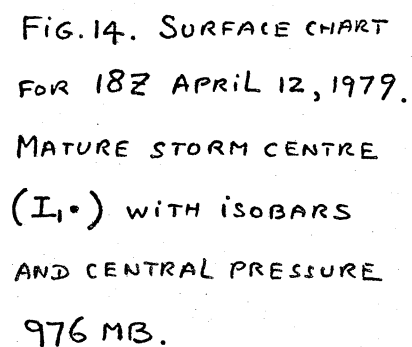 FIG. 14. SURFACE CHART
FOR 18Z APRIL 12, 1979.
MATURE STORM CENTRE
(I₁•) WITH ISOBARS
AND CENTRAL PRESSURE
976 MB.